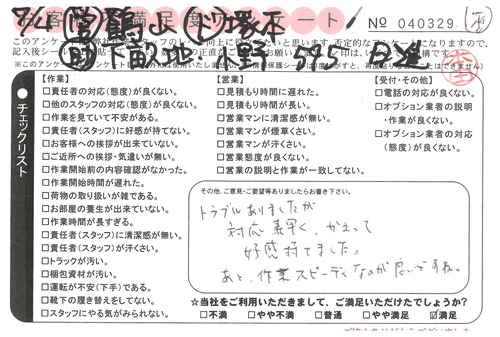 No 040329
チェックリスト
【作業】
□責任者の対応(態度)が良くない。
□他のスタッフの対応(態度)が良くない。
□作業を見ていて不安がある。
□責任者(スタッフ)に好感が持てない。
□お客様への挨拶が出来ていない。
□ご近所への挨拶・気遣いが無い。
□作業開始前の内容確認がなかった。
□作業開始時間が遅れた。
□荷物の取り扱いが雑である。
□お部屋の養生が出来ていない。
□作業時間が長すぎる。
□責任者(スタッフ)に清潔感が無い。
□責任者(スタッフ)が汗くさい。
□トラックが汚い。
□梱包資材が汚い。
□運転が不安(下手)である。
□靴下の履き替えをしてない。
□スタッフにやる気がみられない。
【営業】
□見積もり時間に遅れた。
□見積もり時間が長い。
□営業マンに清潔感が無い。
□営業マンが煙草くさい。
□営業マンが汗くさい。
□営業態度が良くない。
□営業の説明と作業が一致してない。
【受付・その他】
□電話の対応が良くない。
□オプション業者の説明
・作業が良くない。
□オプション業者の対応
(態度)が良くない。
その他、ご意見・ご要望等ありましたらお書き下さい。
トラブルありましたが
対応素早く、かえって
好感持てました。
あと、作業スピーディなのが良いですね。
☆当社をご利用いただきまして、ご満足いただけたでしょうか?
□不満 □やや不満 □普通 □やや満足 ☑満足